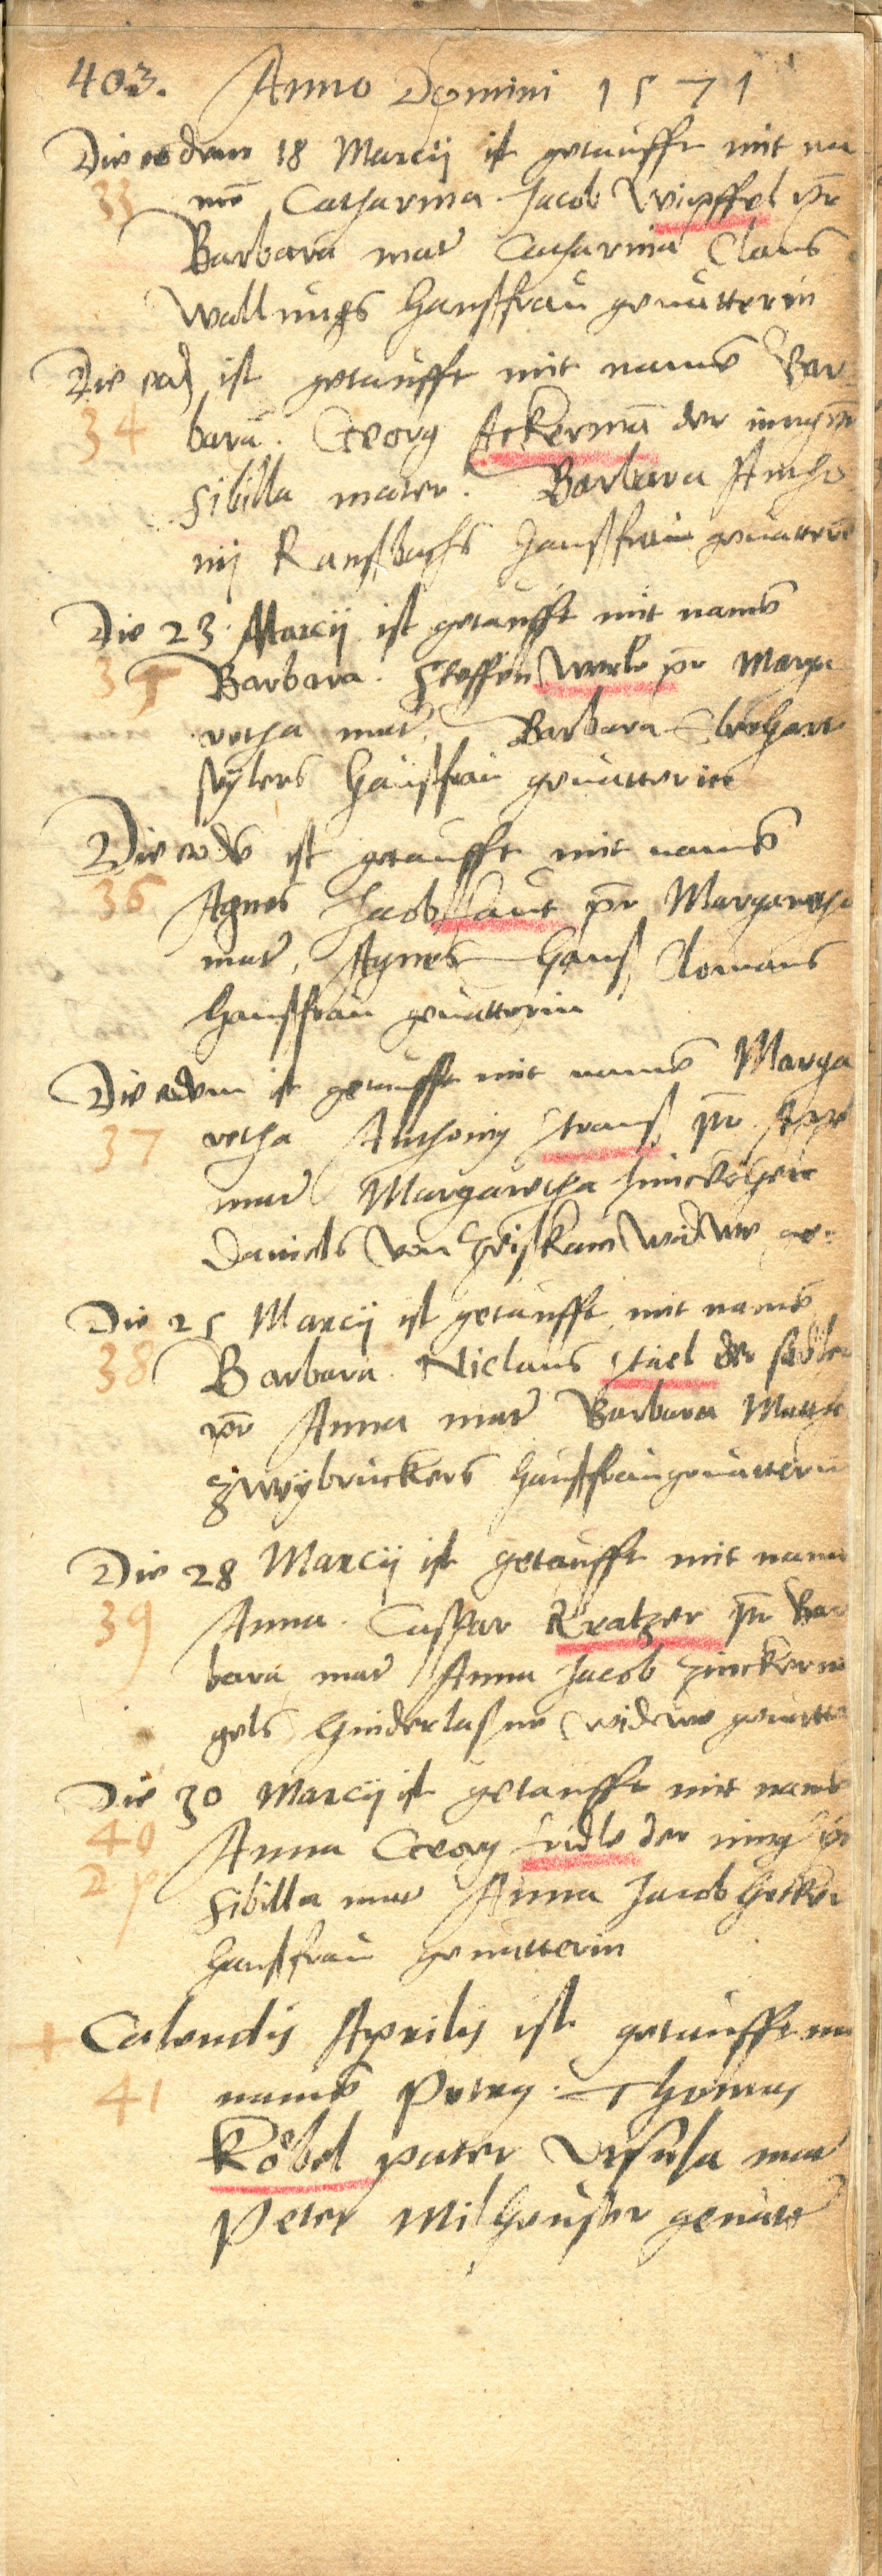 403. Anno Domini 1571
Die eodem 18 Marcij ist getaufft mit na
33 mē Catharina Jacob Wipffel pr̄
Barbara mat̄ Catharina Claus
Wallungs haußfrau geuatterin
Die eod ist getaufft mit namē Bar
34 bara. Georg Ackermā der jung pr̄
Sibilla mater. Barbara Antho
nij Ranßbachs haußfrau geuatterī
Die 23 Marcij ist getaufft mit namē
35 Barbara. Steffen Werle pr̄ Marga
retha mat̄. Barbara Eberhart
haußfrau geuatterin
Die eodē ist getaufft mit namē
36 Agnes Jacob Haut pr̄ Margaretha
mat̄, Agnes Hans Romans
haußfrau geuatterin
Die eodem ist getaufft mit namē Marga
37 retha Anthony Strauß pr̄
mat̄ Margaretha
Daniels von widwe ge:
Die 25 Marcij ist getaufft mit namē
38 Barbara. Niclaus Stael der sedler
pr̄ Anna mat̄ Barbara Matth
Zweybruckers haußfrau geuatterin
Die 28 Marcij ist getaufft mit namē
39 Anna. Caspar Kratzer pr̄ Bar
bara mat̄ Anna Jacob Zinckern
gels hinderlaßne widwe geuatte
Die 30 Marcij ist getaufft mit namē
40 Anna Georg Lidle der jung pr̄
2 p. Sibilla mat̄ Anna Jacob Hecker
haußfrau geuatterin
+ Calendis Aprilis ist getaufft mi
41 namē Peter. Thomas
Köbel pater Ursula mat̄
Peter Milheuser geuatt̄